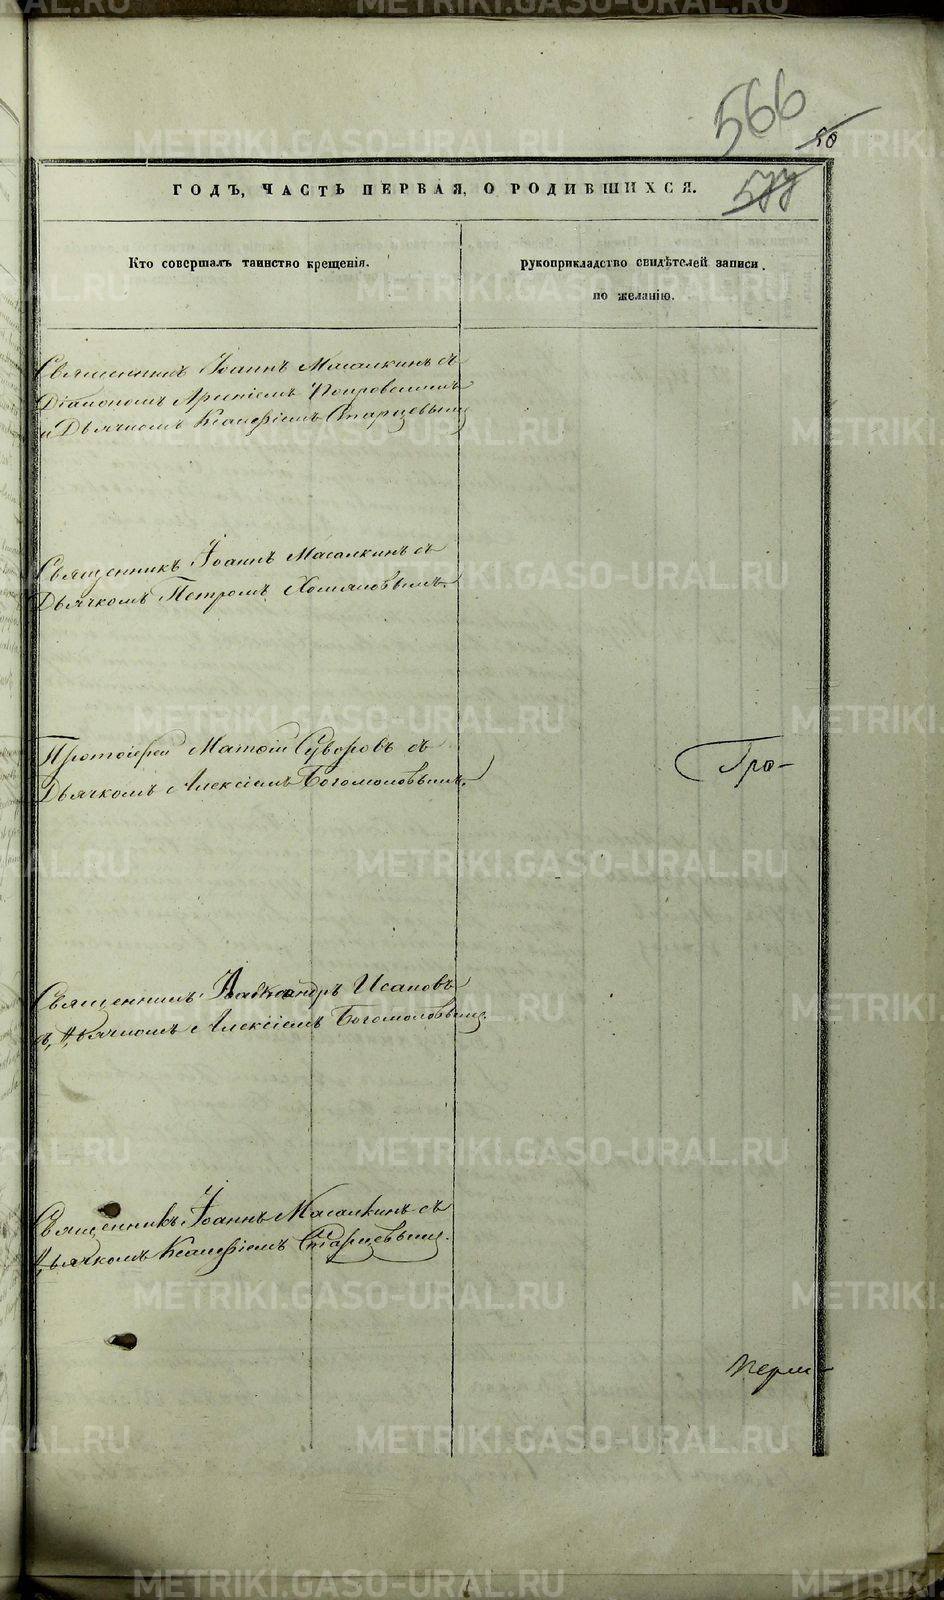 566
50
577
ГОДЪ, ЧАСТЬ ПЕРВАЯ, О РОДИВШИХСЯ.
Кто совершалъ таинство крещенія.
рукоприкладство свидѣтелей записи
по желанію.
Священникъ Іоаннъ Масалкинъ съ
Діакономъ Арсеніемъ
и Дьячкомъ Ксанфіемъ Старцевымъ
Священникъ Іоаннъ Масалкинъ съ
Дьячкомъ Петромъ Хомяковымъ.
Протоіерей Матѳій Суворовъ съ
Дьячкомъ Алексіемъ Богомоловымъ.
Про-
Священникъ Александръ Исаковъ
съ Дьячкомъ Алексіемъ Богомоловымъ.
Священникъ Іоаннъ Масалкинъ съ
Дьячкомъ Ксанфіемъ Старцевымъ.
Перм-
METRIKI.GASO-URAL.RU